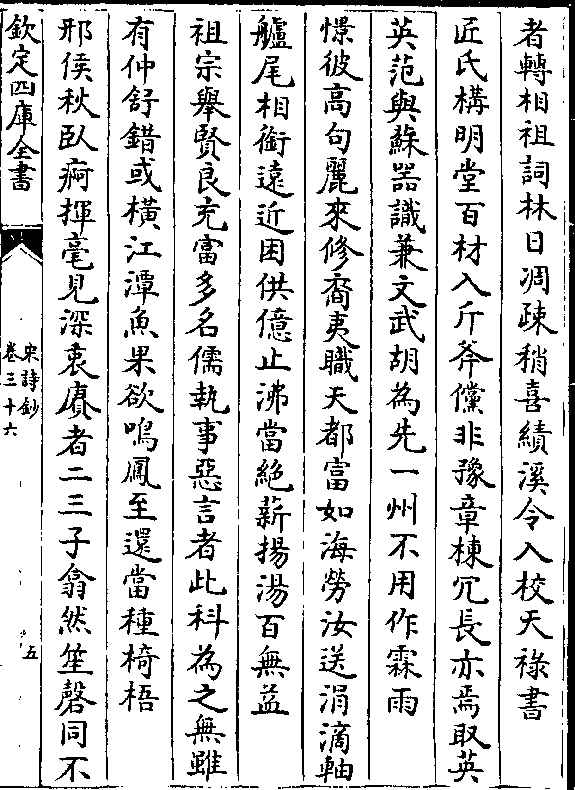 者轉相祖詞林日凋疎稍喜績溪令入校天祿書
匠氏構明堂百材入斤斧儻非豫章棟冗長亦焉取英
英范與蘇器識兼文武胡為先一州不用作霖雨
憬彼高句麗來修裔夷職天都富如海勞汝送涓滴軸
艫尾相銜遠近困供億止沸當絶薪揚湯百無益
祖宗舉賢良充富多名儒執事惡言者此科為之無雖
有仲舒錯或橫江潭魚果欲鳴鳳至還當種椅梧
邢侯秋臥痾揮毫見深衷賡者二三子翕然笙磬同不
欽定四庫全書
宋詩鈔
卷三十六
五